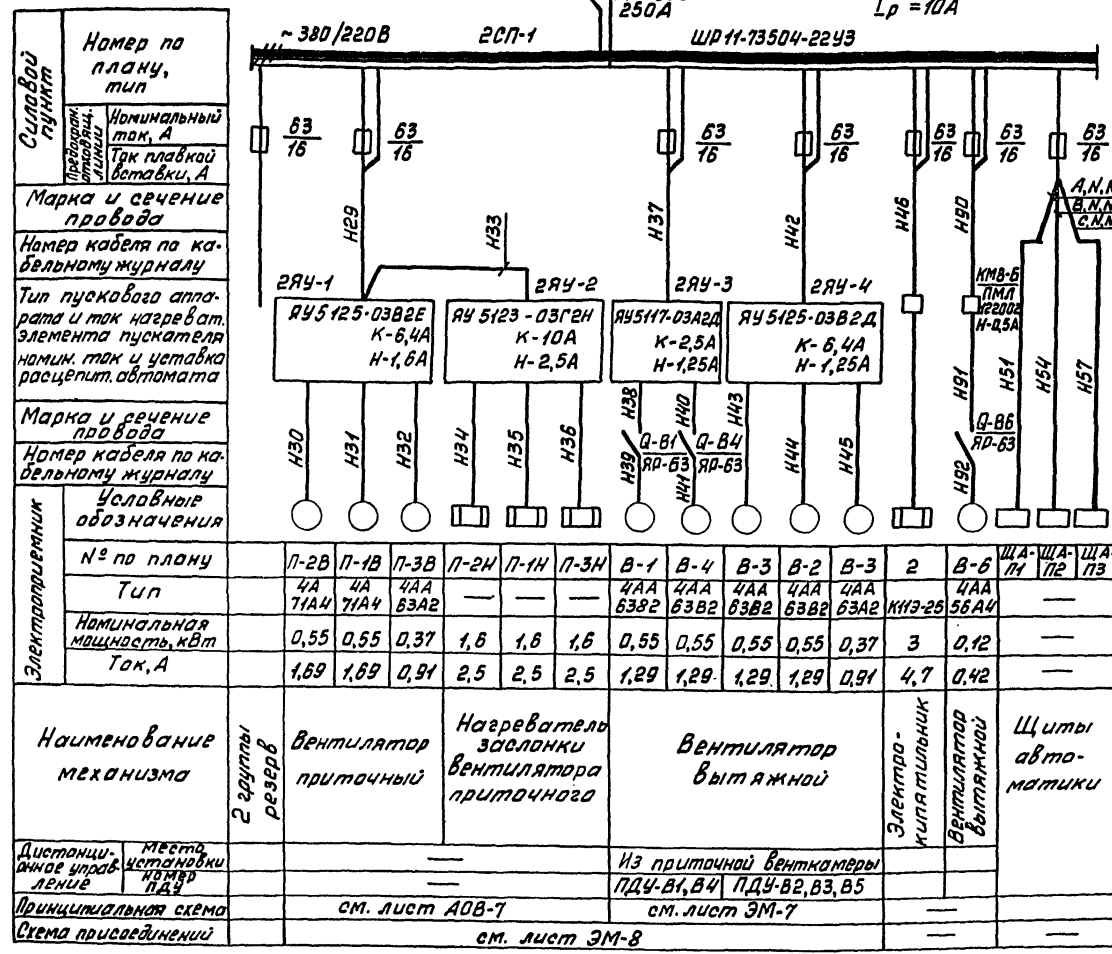 250А
Iр = 10А
~ 380/220В 2СП-1 ШР11-73504-22У3
Силовой пункт
Номер по плану, тип
Предохран. отходящ. линии
Номинальный ток, А
Ток плавкой вставки, А
63 63 63 63 63 63 63
16 16 16 16 16 16 16
Марка и сечение
провода
Номер кабеля по ка-
бельному журналу
Н29 Н33 Н37 Н42 Н46 Н90
А,N,N
В,N,N
С,N,N
Тип пускового аппа-
рата и ток нагреват.
элемента пускателя
номин. ток и уставка
расцепит. автомата
2ЯУ-1 2ЯУ-2 2ЯУ-3 2ЯУ-4
ЯУ5125-03В2Е ЯУ5123-03Г2Н ЯУ5117-03А2Д ЯУ5125-03В2Д
К-6,4А К-10А К-2,5А К-6,4А
Н-1,6А Н-2,5А Н-1,25А Н-1,25А
КМВ-6
ПМЛ
Н-0,5А
Марка и сечение
провода
Номер кабеля по ка-
бельному журналу
Н30 Н31 Н32 Н34 Н35 Н36 Н38 Н40 Н43 Н44 Н45 Н91 Н51 Н54 Н57
Н39 Н41 Н92
Q-В1 Q-В4 Q-В6
ЯР-63 ЯР-63 ЯР-63
Электроприемник
Условные
обозначения
№ по плану П-2В П-1В П-3В П-2Н П-1Н П-3Н В-1 В-4 В-3 В-2 В-3 2 В-6 ЩА-П1 ЩА-П2 ЩА-П3
Тип 4А 71А4 4А 71А4 4АА 63А2 — — — 4АА 63В2 4АА 63В2 4АА 63В2 4АА 63В2 4АА 63А2 КНЭ-25 4АА 56А4 —
Номинальная
мощность, кВт 0,55 0,55 0,37 1,6 1,6 1,6 0,55 0,55 0,55 0,55 0,37 3 0,12 —
Ток, А 1,69 1,69 0,91 2,5 2,5 2,5 1,29 1,29 1,29 1,29 0,91 4,7 0,42 —
Наименование
механизма
2 группы
резерв
Вентилятор
приточный
Нагреватель
заслонки
вентилятора
приточного
Вентилятор
вытяжной
Электро-
кипятильник
Вентилятор
вытяжной
Щиты
авто-
матики
Дистанци-
онное управ-
ление
место
установки — Из приточной венткамеры
номер
ПДУ — ПДУ-В1,В4 ПДУ-В2,В3,В5
Принципиальная схема см. лист АОВ-7 см. лист ЭМ-7 —
Схема присоединений см. лист ЭМ-8 — —